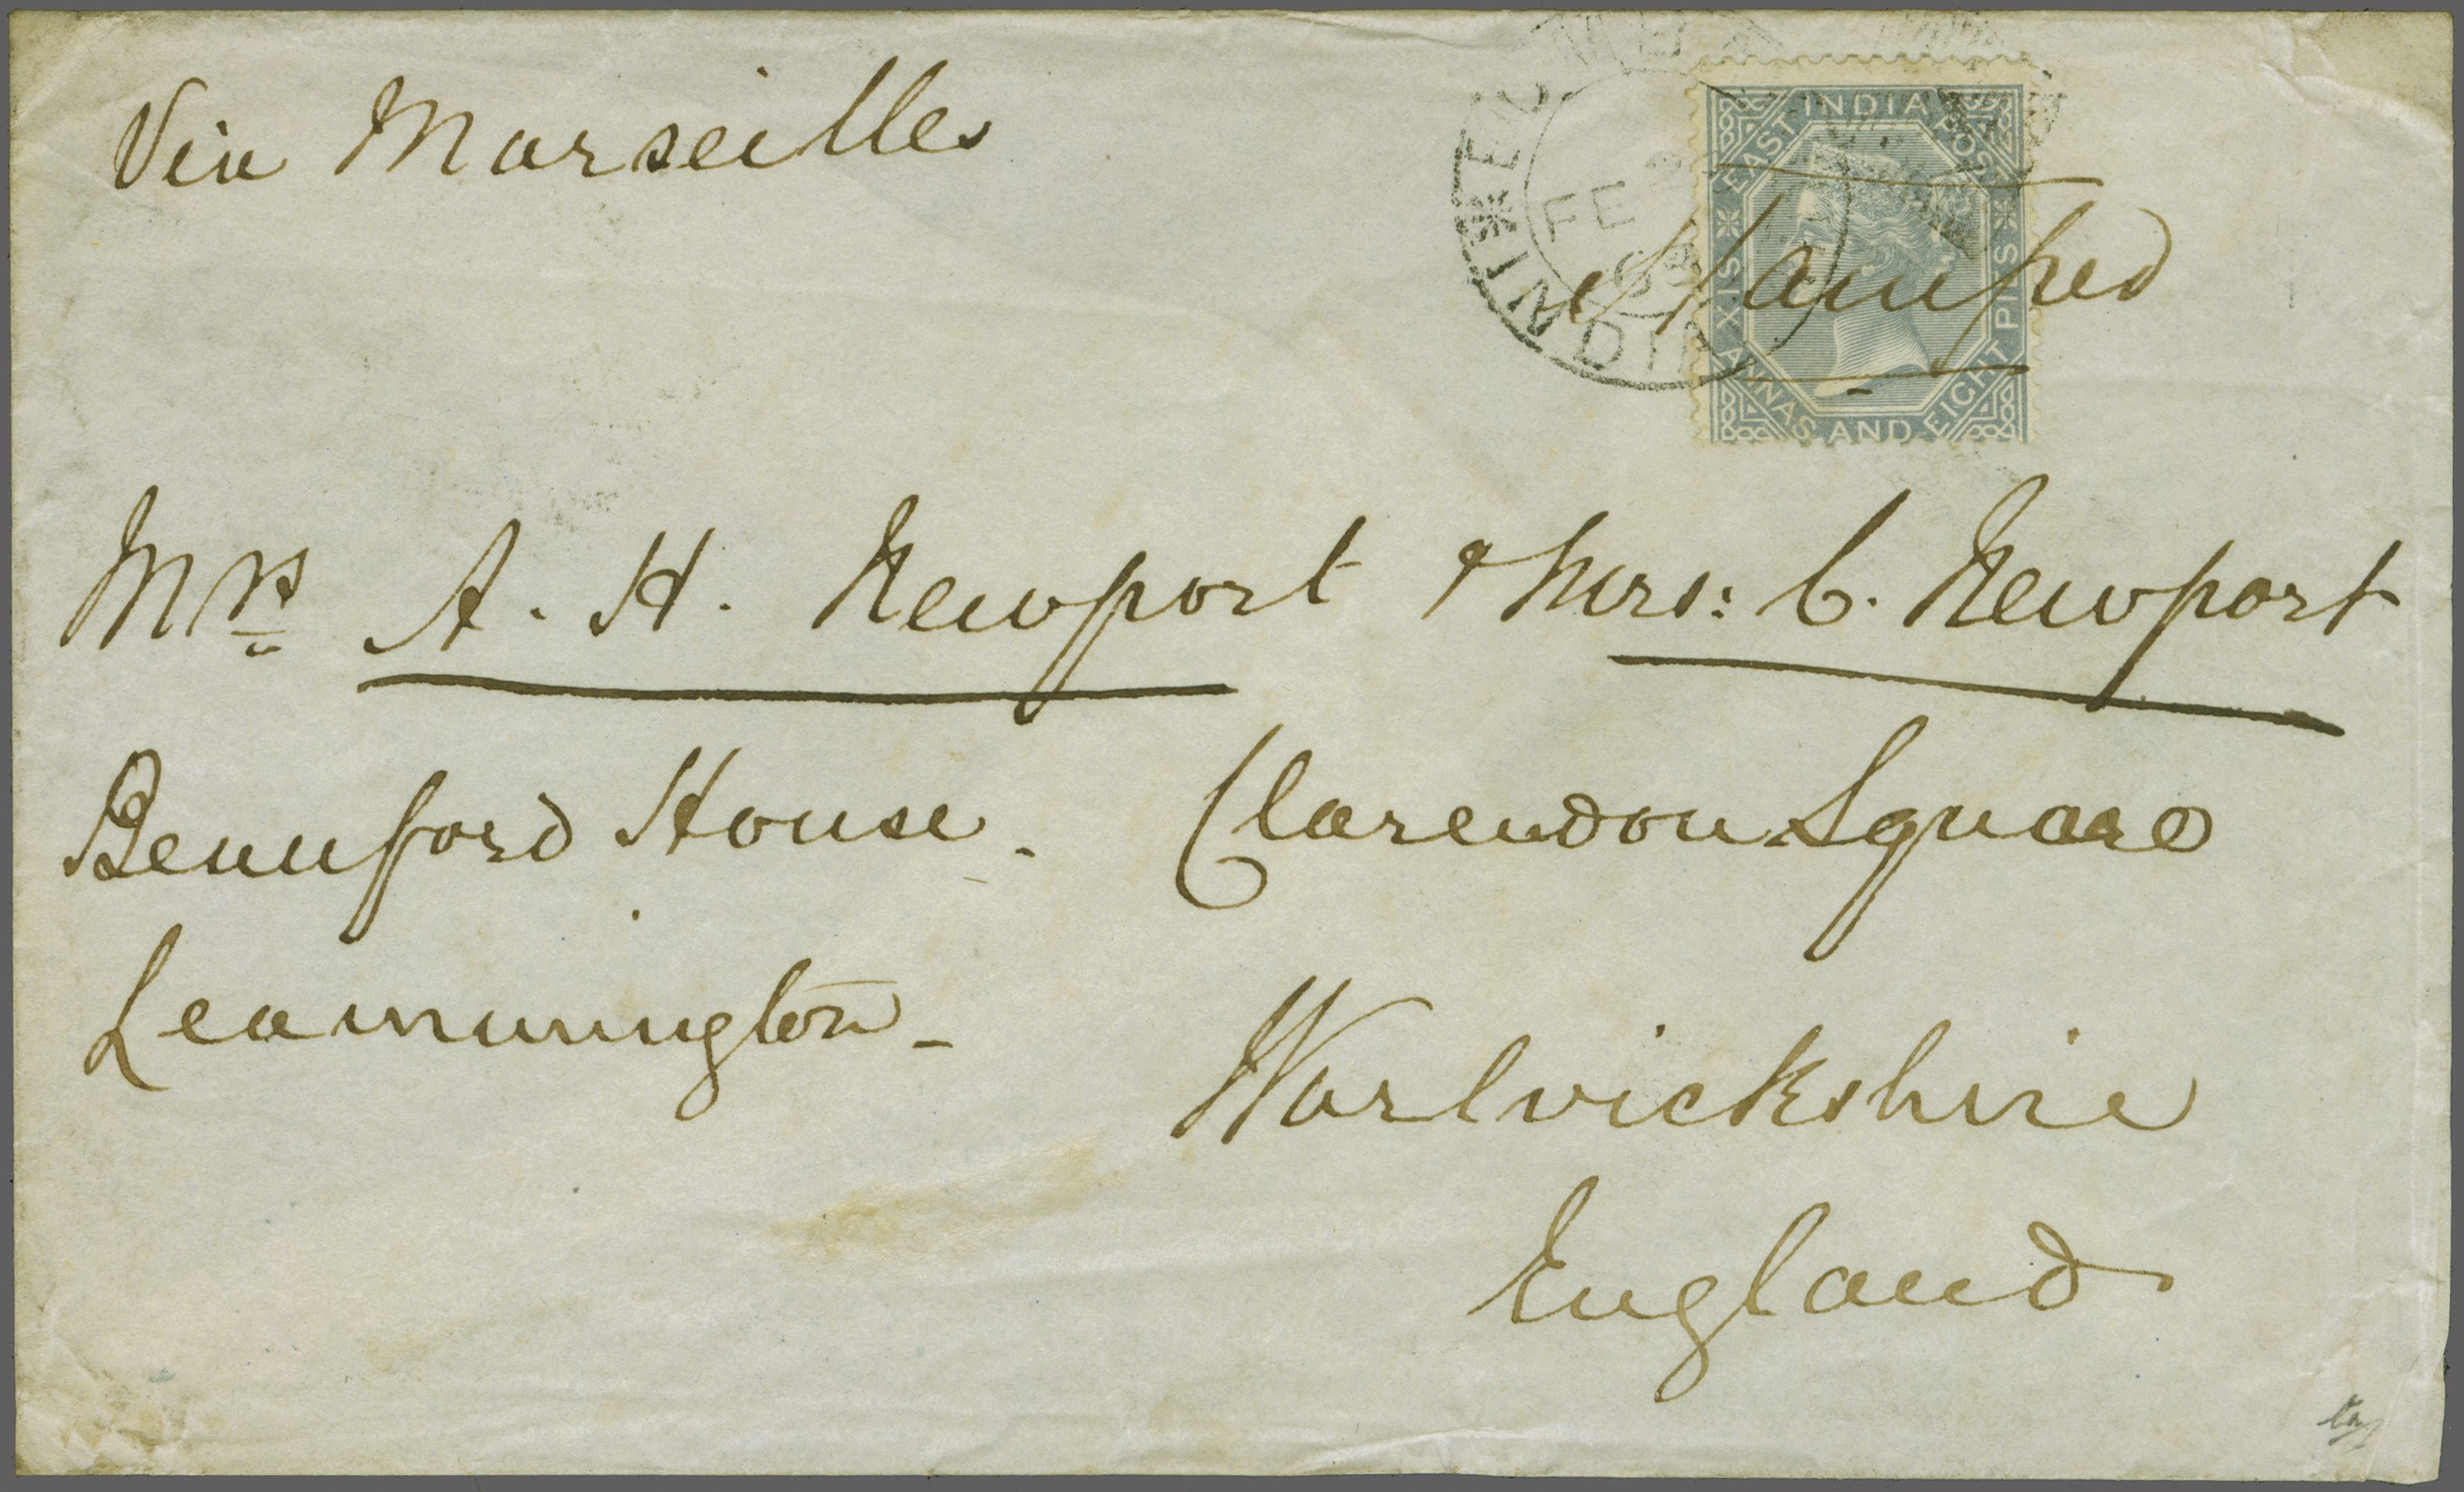 Via Marseilles
EAST INDIA POSTAGE
SIX ANNAS AND EIGHT PIES
INDIA
FE
Stamped
Mrs A. H. Newport & Mrs: C. Newport
Bemford House. Clarendon Square
Leamington - Warwickshire
England